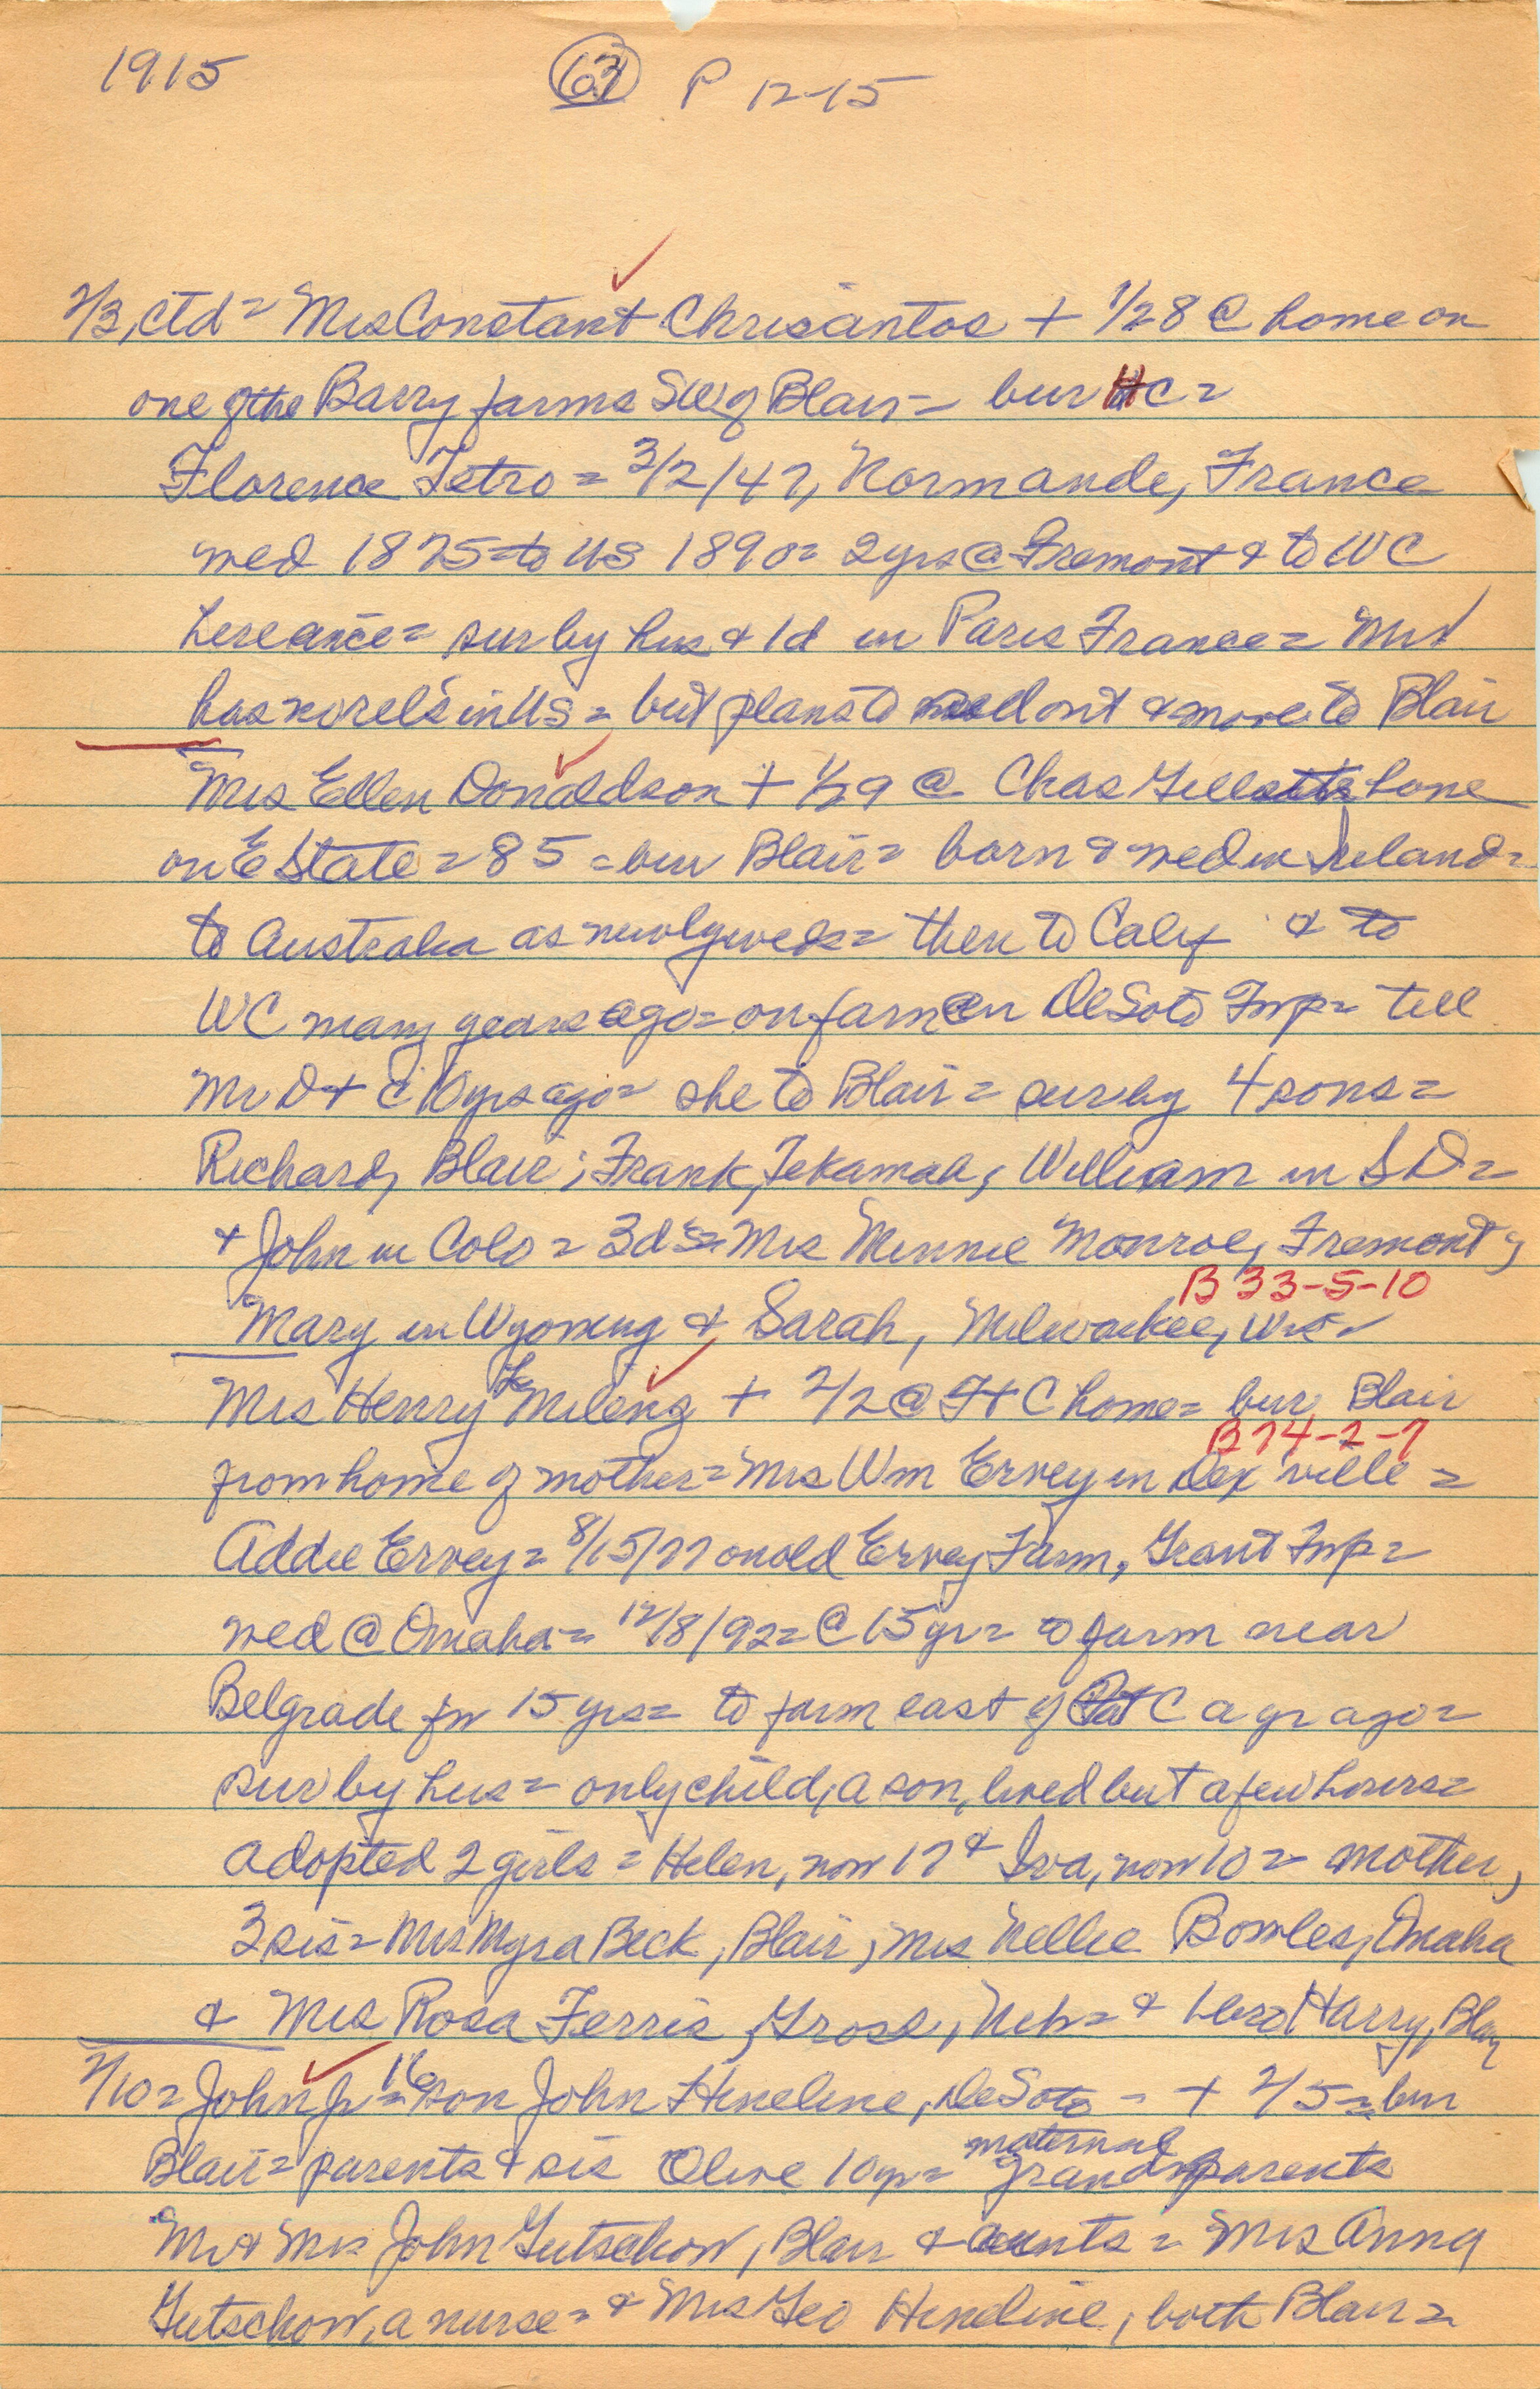 1915 63 P 12-15
2/3, ctd = Mrs Constant Chrisantos + 1/28 @ home on
one of the Barry farms SW of Blair = bur HC =
Florence Tetro = 3/2/47, Normande, France
wed 1875 = to US 1890 = 2 yrs @ Fremont & to WC
here since = sur by hus & 1d in Paris France = Mr
has no rels in US = but plans to out & move to Blair
Mrs Ellen Donaldson + 1/29 @ Chas home
on E State = 85 = bur Blair = born & wed in Ireland =
to Australia as newlyweds = then to Calif & to
WC many years ago = on farm in DeSoto Twp = till
Mr D + c 10 yrs ago = she to Blair = sur by 4 sons =
Richard, Blair; Frank, Tekamah, William in SD =
& John in Colo = 3d's = Mrs Minnie Monroe, Fremont,
B 33-5-10
Mary in Wyoming & Sarah, Milwaukee, Wis =
Mrs Henry Le Mileng + 2/2 @ Ft C home = bur Blair
B 74-2-7
from home of mother = Mrs Wm Ervey in Dex'ville =
Addie Ervey = 8/15/77 on old Ervey Farm, Grant Twp =
wed @ Omaha = 12/8/92 = @ 15 yr = to farm near
Belgrade for 15 yrs = to farm east of C a yr ago =
sur by hus = only child, a son, lived but a few hours =
adopted 2 girls = Helen, now 17 & Iva, now 10 = mother,
3 sis = Mrs Myra Beck, Blair, Mrs Nellie Bowles, Omaha
& Mrs Rosa Ferris, Gross, Neb = & bro Harry, Blair
2/10 = John Jr = 16 = son John Hineline, DeSoto = + 2/5 = bur
Blair = parents & sis Olive 10 yr = maternal grandparents
Mr & Mrs John Gutschow, Blair & aunts = Mrs Anna
Gutschow, a nurse = & Mrs Geo Hineline, both Blair =